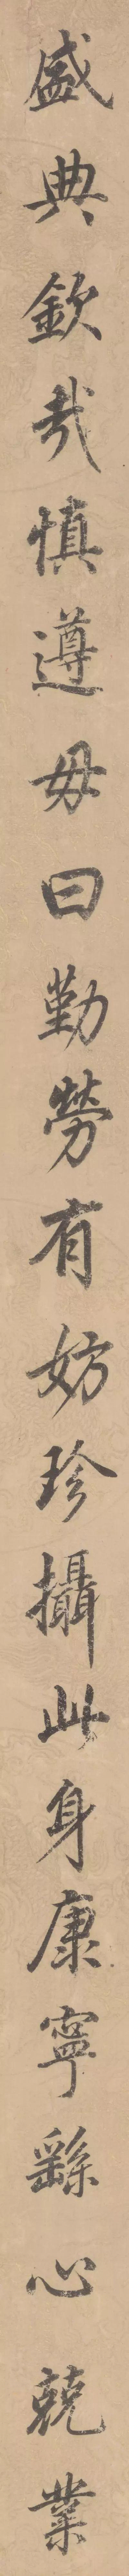 盛典欽哉慎遵毋曰勤勞有妨珍攝此身康寧繇心兢業